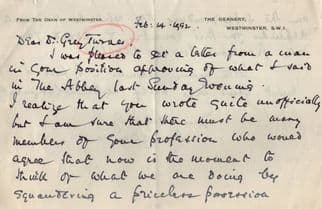 FROM THE DEAN OF WESTMINSTER.
THE DEANERY,
WESTMINSTER, S.W.1.
Feb. 14. 1952
Dear Dr Grey Turner,
I was pleased to get a letter from a man
in your position approving of what I said
in The Abbey last Sunday Evening.
I realize that you wrote quite unofficially
but I am sure that there must be many
members of your profession who would
agree that now is the moment to
think of what we are doing by
squandering a priceless possession